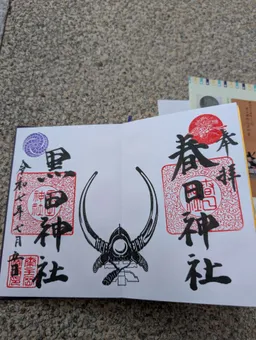 奉拝
春日神社
黒田神社
令和七年七月五日